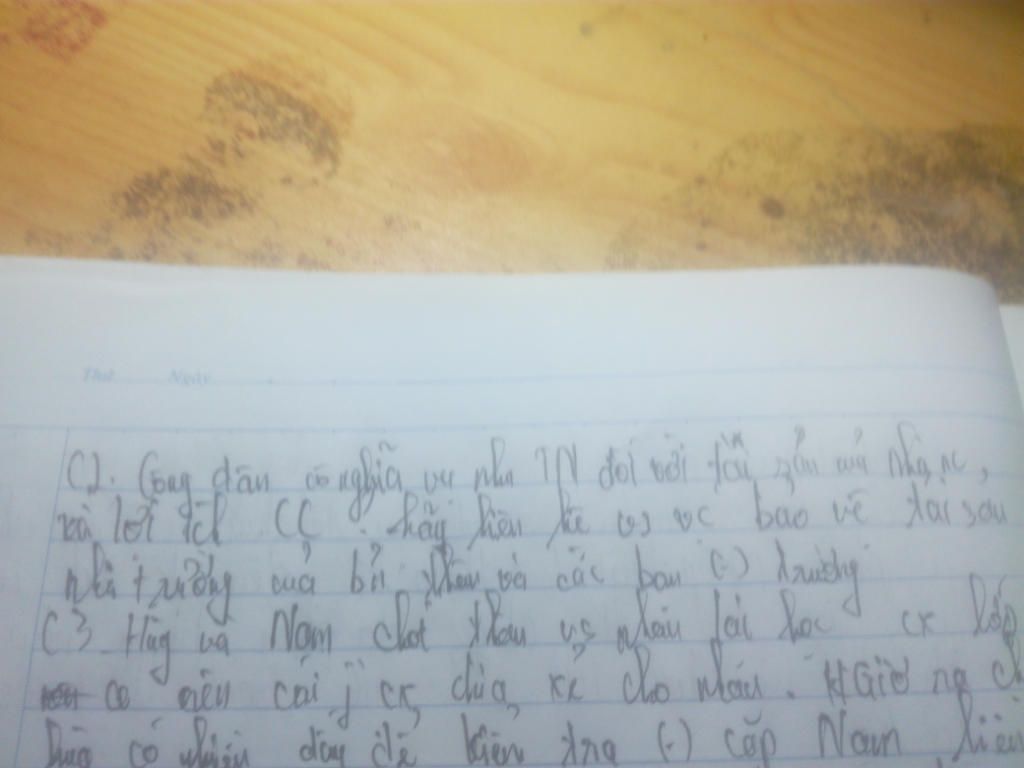 Thứ Ngày
C2. Công dân có nghĩa vụ như TN đối với tài sản của nhà nc,
và lợi ích CC. hãy liên hệ vs vc bảo vệ tài sản
nhà trường của bản thân và các bạn (-) trường
C3 Hùng và Nam chơi thân vs nhau lại học cx lớp
có nên cái j cx chia sẻ cho nhau. Giờ
Hùng có nhiều đóng để kiểm tra (-) cặp Nam liền